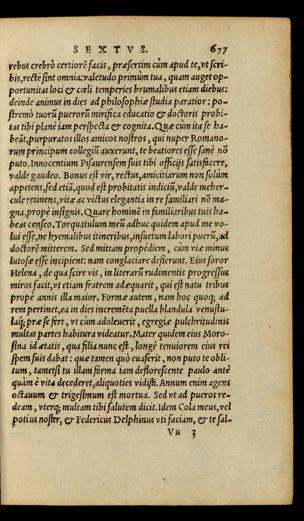 SEXTVS. 677
rebus crebrò certiorē facis, præsertim cùm apud te, vt scri-
bis, rectè sint omnia: valetudo primùm tua, quam auget op-
portunitas loci & cœli temperies brumalibus etiam diebus:
deinde animus in dies ad philosophiæ studia paratior: po-
stremò tuorū puerorū mirifica educatio & doctoris probi-
tas tibi planè iam perspecta & cognita. Quæ cùm ita se ha-
beāt, purpuratos illos amicos nostros, qui nuper Romano-
rum principum collegiū auxerunt, te beatiores esse sanè nō
puto. Innocentium Pisaurensem suis tibi officijs satisfacere,
valde gaudeo. Bonus est vir, rectus, amicitiarum non solùm
appetens, sed etiā, quod est probitatis indiciū, valde meher-
cule retinens, vitæ ac victus elegantia in re familiari nō ma-
gna, propè insignis. Quare hominē in familiaribus tuis ha-
beas censeo. Torquatulum meū adhuc quidem apud me vo-
lui esse, ne hyemalibus itineribus, insuetum labori puerū, ad
doctorē mitterem. Sed mittam propediem, cùm viæ minus
lutosæ esse incipient: nam conglaciare desierunt. Eius soror
Helena, de qua scire vis, in literarū rudimentis progressus
miros facit, vt etiam fratrem adæquarit, qui est natu tribus
propè annis illa maior. Formæ autem, nam hoc quoq; ad
rem pertinet, ea in dies incremēta puella blandula venustu-
laq́; præ se fert, vt cùm adoleuerit, egregiæ pulchritudinis
multas partes habitura videatur. Mater quidem eius Moro-
sina id ætatis, qua filia nunc est, longè tenuiorem eius rei
spem suis dabat: quæ tamen quò euaserit, non puto te obli-
tum, tametsi tu illam forma iam deflorescente paulo antè
quàm è vita decederet, aliquoties vidisti. Annum enim agens
octauum & trigesimum est mortua. Sed vt ad pueros re-
deam, vterq; multam tibi salutem dicit. Idem Cola meus, vel
potius noster, & Federicus Delphinus vti faciam, & te sal-
Vu 3